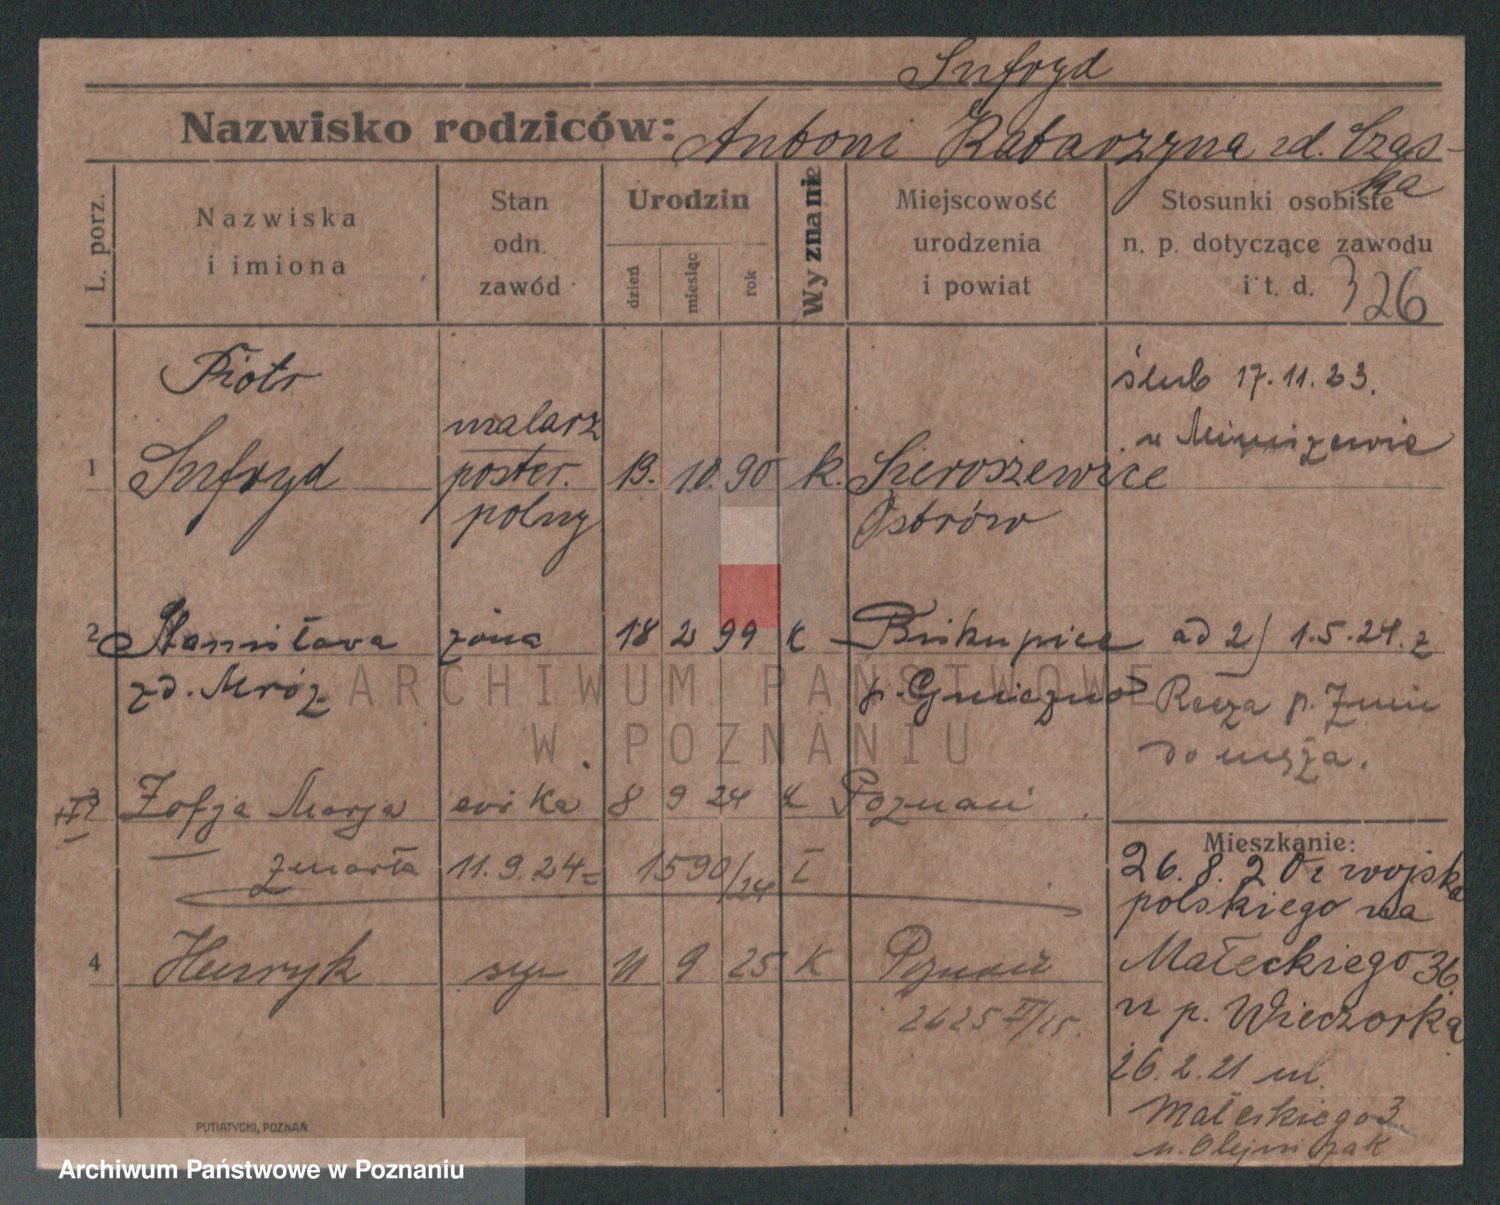 Sufryd
Nazwisko rodziców: Antoni Katarzyna zd. Czas-
ka
L. porz.
Nazwiska
i imiona
Stan
odn.
zawód
Urodzin
dzień
miesiąc
rok
Wyznanie
Miejscowość
urodzenia
i powiat
Stosunki osobiste
n. p. dotyczące zawodu
i t. d.
326
Piotr
1 Sufryd
malarz
poster.
polny
13. 10. 90 k. Sieroszewice
Ostrów
ślub 17.11.23.
w
2 Stanisława żona 18 2 99 k Biskupice ad 2) 1.5.24. z
zd. Mróz p. Gniezno p. Żnin
do męża.
3 Zofja Marja córka 8 9 24 k Poznań
zmarła 11.9.24= 1590/24 I
4 Henryk syn 11 9 25 K Poznań
2625
Mieszkanie:
26.8.20 z wojska
polskiego na
Małeckiego 36
u p. Wieczorka
26.2.21 ul.
Małeckiego 3
u. Olejniczak
PUTIATYCKI, POZNAŃ
ARCHIWUM PAŃSTWOWE
W POZNANIU
Archiwum Państwowe w Poznaniu